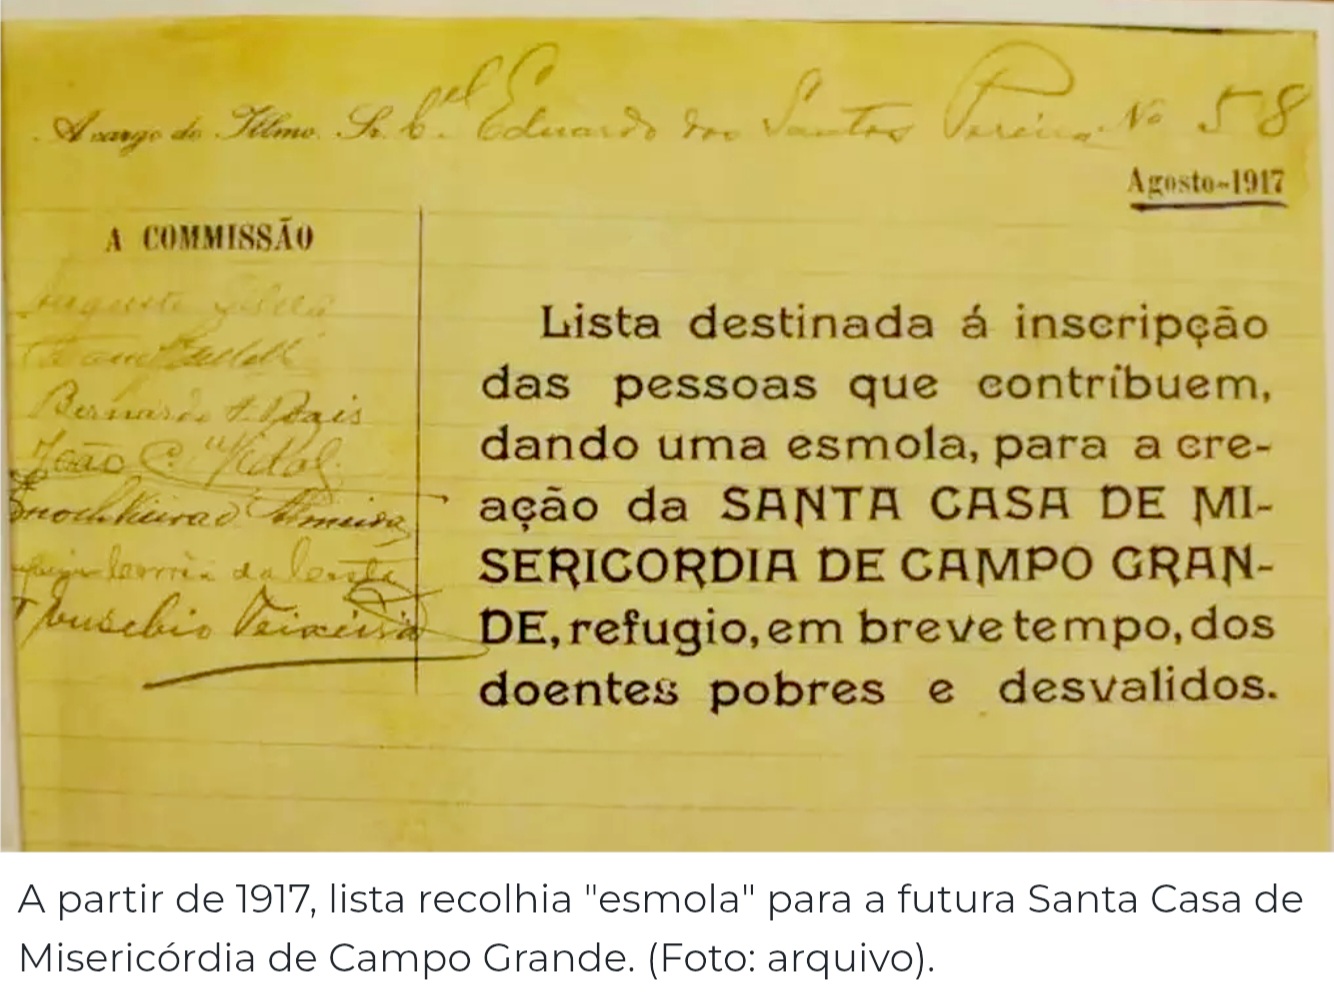 A cargo do Illmo. Sr. Cel Eduardo dos Santos Pereira No 58
Agosto-1917
A COMMISSÃO
Bernardo F. Bais
João C. Vidal
Almeida
da
Eusebio Teixeira
Lista destinada á inscripção
das pessoas que contribuem,
dando uma esmola, para a cre-
ação da SANTA CASA DE MI-
SERICORDIA DE CAMPO GRAN-
DE, refugio, em breve tempo, dos
doentes pobres e desvalidos.
A partir de 1917, lista recolhia "esmola" para a futura Santa Casa de
Misericórdia de Campo Grande. (Foto: arquivo).